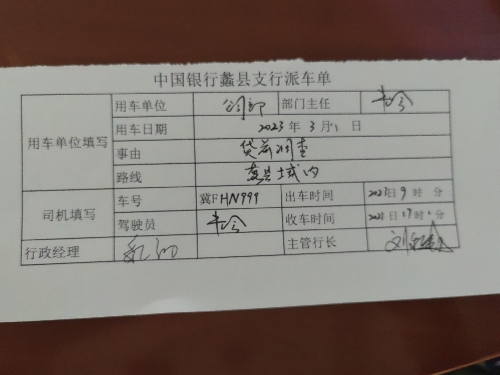 中国银行蠡县支行派车单
用车单位填写 用车单位 公司部 部门主任
用车日期 2023 年 3 月 1 日
事由 贷前调查
路线 蠡县城内
司机填写 车号 冀FHN999 出车时间 日 9 时 分
驾驶员 收车时间 日 17 时 分
行政经理 主管行长 刘